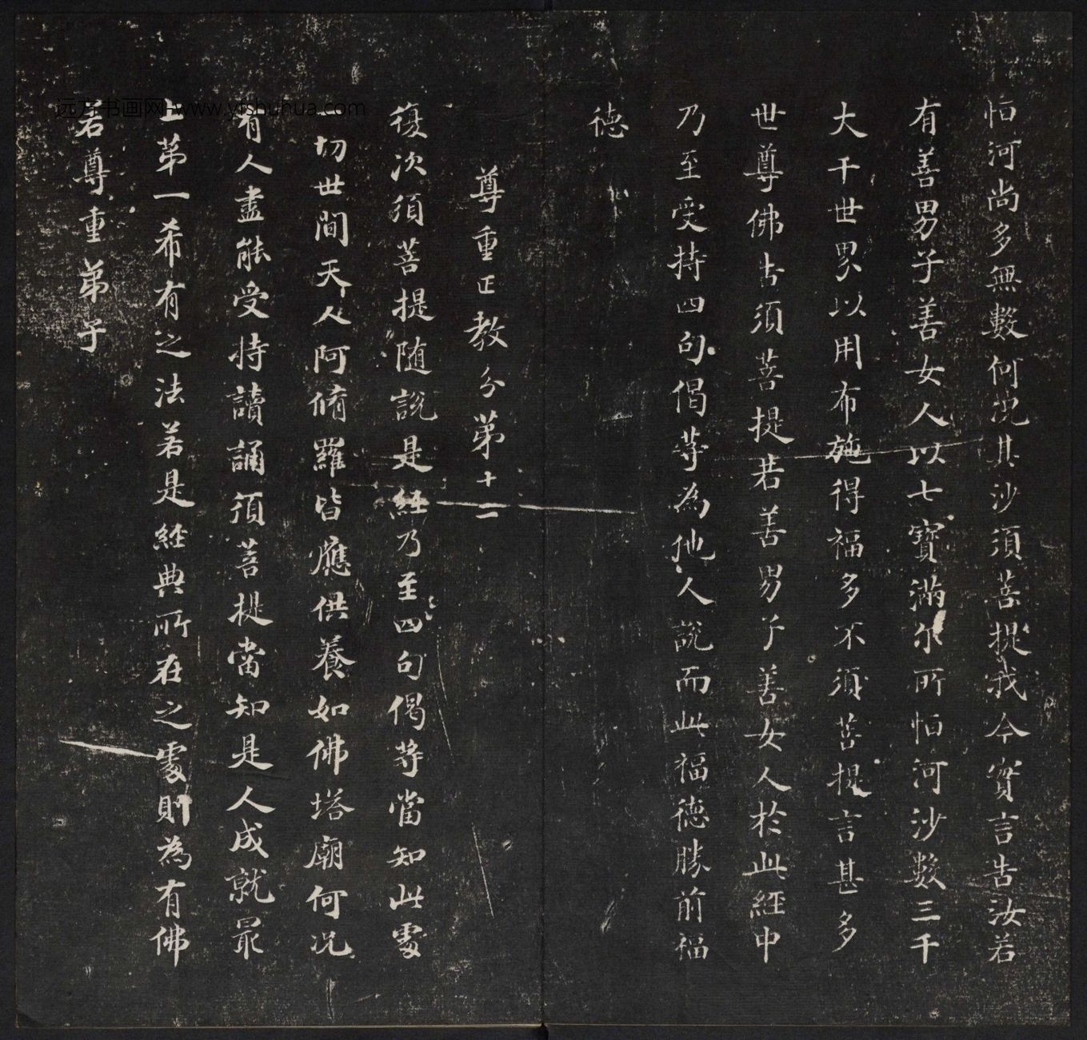 恒河尚多無數何况其沙須菩提我今實言告汝若
有善男子善女人以七寶滿尔所恒河沙數三千
大千世界以用布施得福多不須菩提言甚多
世尊佛告須菩提若善男子善女人於此經中
乃至受持四句偈等為他人說而此福德勝前福
德
尊重正教分第十二
復次須菩提随說是經乃至四句偈等當知此處
一切世間天人阿脩羅皆應供養如佛塔廟何况
有人盡能受持讀誦須菩提當知是人成就最
上第一希有之法若是經典所在之處則為有佛
若尊重弟子
远方书画网 www.yfshuhua.com